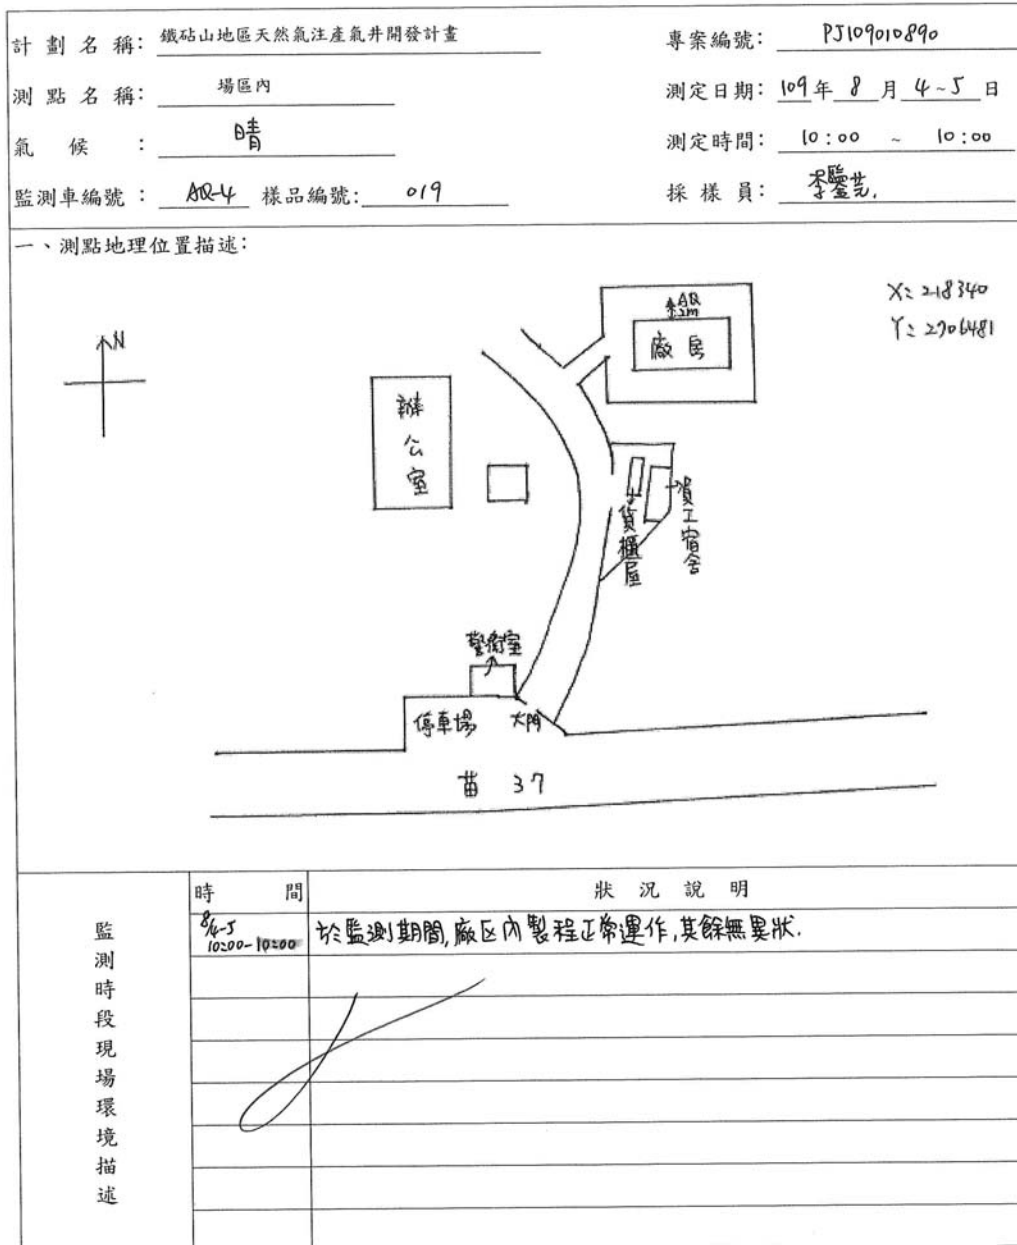 計劃名稱: 鐵砧山地區天然氣注產氣井開發計畫 專案編號: PJ109010890
測點名稱: 場區內 測定日期: 109年 8 月 4~5 日
氣候: 晴 測定時間: 10:00 ~ 10:00
監測車編號: AQ-4 樣品編號: 019 採樣員:
一、測點地理位置描述:
X: 218340
Y: 2706481
N
AQ
2m
廠房
辦公室
員工宿舍
貨櫃屋
警衛室
停車場 大門
苗 37
時間 狀況說明
監測時段現場環境描述
8/4-5
10:00-10:00 於監測期間,廠区內製程正常運作,其餘無異狀.